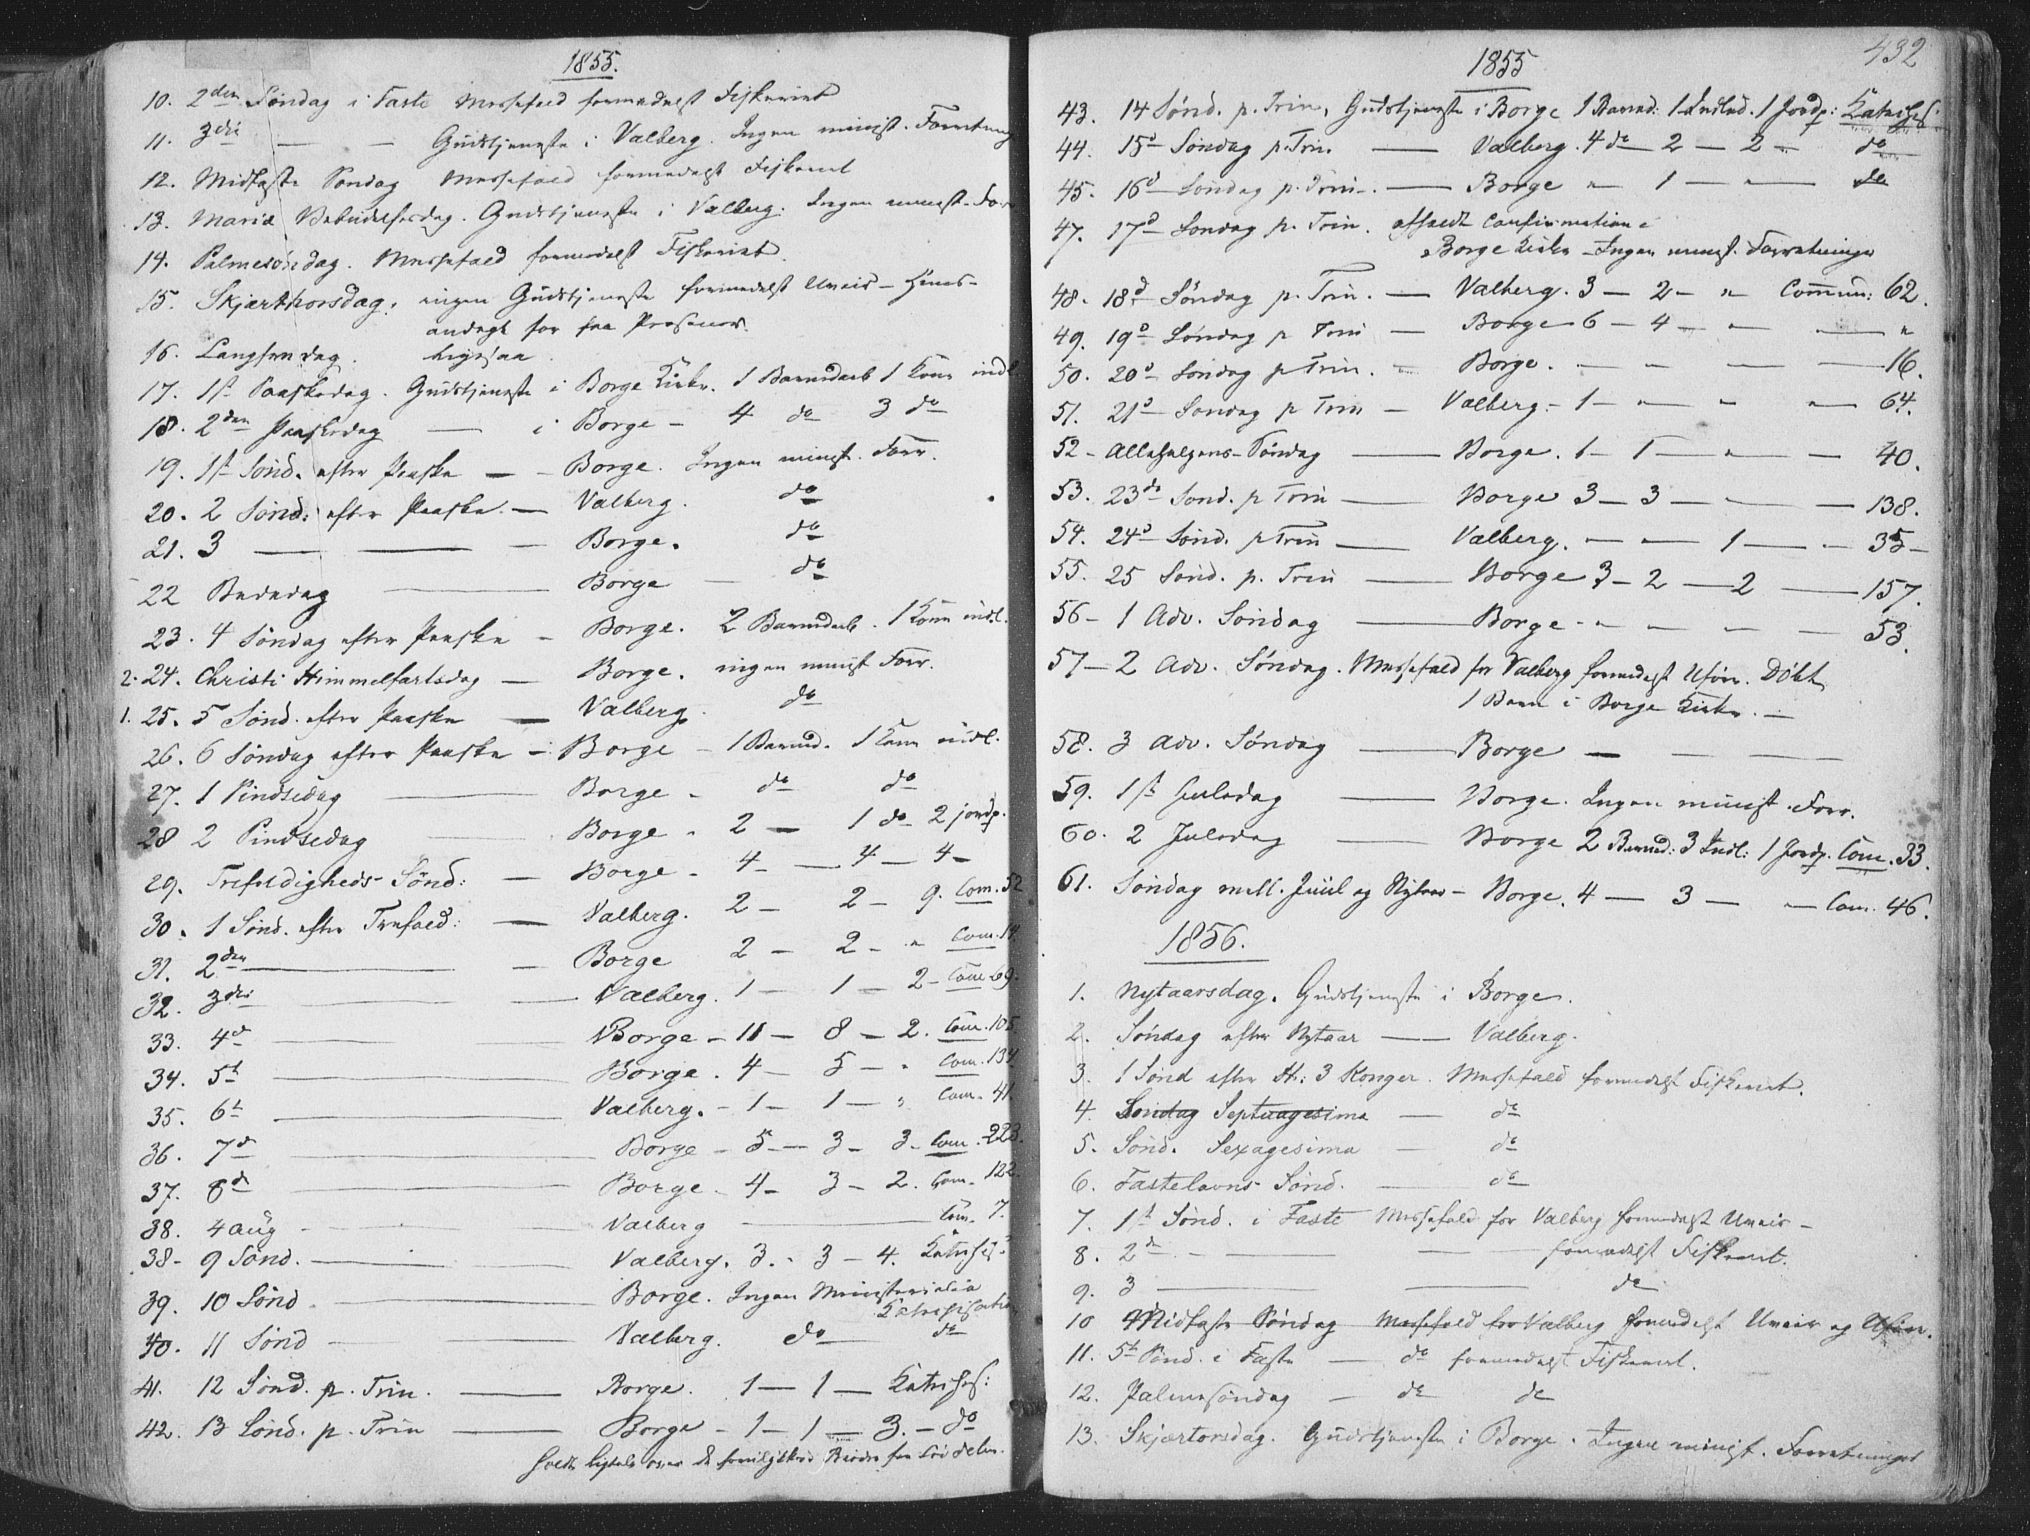 1855.
10. 2den Søndag i Faste Messefald formedelst Fiskeriet
11. 3die — — Gudstjeneste i Valberg. Ingen minist. Forretning
12. Midfaste Søndag Messefald formedelst Fiskeriet
13. Mariæ Bebudelsesdag. Gudstjeneste i Valberg. Ingen minist. Forr
14. Palmesöndag. Messefald formedelst Fiskeriet.
15. Skjærthorsdag. ingen Gudstjeneste formedelst Uveir – Huus-
andagt for faa Personer.
16. Langfredag. ligesaa
17. 1st Paaskedag. Gudstjeneste i Borge Kirke. 1 Barnedaab 1 Kone indl
18. 2den Paaskedag — i Borge – 4 do 3 do
19. 1st Sönd. efter Paaske — Borge. Ingen minist. Forr.
20. 2 Sönd. efter Paaske. — Valberg. do
21. 3 — — — Borge. do
22 Bededag — Borge — do
23. 4 Söndag efter Paaske – Borge. 2 Barnedaab. 1 Kone indl.
2. 24. Christi Himmelfartsdag — Borge. ingen minist Forr.
1. 25. 5 Sönd. efter Paaske — Valberg. do
26. 6 Söndag efter Paaske – Borge – 1 Barned. 1 Kone indl.
27. 1 Pindsedag — Borge – do do
28 2 Pindsedag — Borge – 2 — 1 do 2 jordp.
29. Trefoldigheds-Sönd: — Borge – 4 — 4 — 4 –
30. 1 Sönd. efter Trefold: — Valberg. 2 — 2 — 9. Com. 52
31. 2den — — Borge 2 — 2 – " Com. 14
32. 3die — Valberg. 1 — 1 — 2 – Com 69.
33. 4de — Borge – 11 — 8 — 2. Com. 105
34. 5te — Borge. 4 — 5 — " Com. 134
35. 6te — Valberg. – 1 — 1 — " Com. 41
36. 7de — Borge – 5 — 3 – 3 – Com. 223.
37. 8de — Borge – 4 – 3 – 2. Com. 122
38. 4 Aug – — Valberg — Com. 7.
38 – 9 Sönd. — Valberg. 3. – 3 – 4. Katechis:
39. 10 Sönd — Borge. Ingen Ministerialia
Katechisation
40. 11 Sönd — Valberg. do do
41. 12 Sönd. p. Trin. — Borge. 1 — 1 — Katechis:
42. 13 Sönd. p. Trin — Borge – 1 — 1 — 3. – do
1855
432
43. 14 Sönd. p. Trin. Gudstjeneste i Borge 1 Barned: 1 Indled. 1 Jordp: Katechis:
44. 15de Söndag p. Trin. — Valberg. 4 do 2 — 2 – do
45. 16d – Söndag p. Trin. — Borge " 1 — " — do
47. 17d – Söndag p. Trin. afholdt Confirmation i
Borge Kirke – Ingen minist. Forretninger
48. 18d Söndag p. Trin. — Valberg. 3 — 2 – " Commun: 62.
49. 19d Söndag p Trin — Borge 6 – 4 – " — "
50. 20d – Söndag p Trin. – Borge. – — — — 16.
51. 21d – Söndag p Trin – Valberg. – 1 – " " — 64.
52 – Allehelgens-Söndag — Borge. 1 – 1 — " — 40.
53. 23de Sönd. p Trin — Borge 3 — 3 — — — 138.
54. 24d Sönd. p Trin — Valberg. — — 1 — – 35 –
55. 25 Sönd. p. Trin — Borge 3 – 2 — 2 — 157.
56 – 1 Adv. Söndag — Borge – " — — — 53.
57 – 2 Adv. Söndag. Messefald for Valberg formedelst Uføre. Döbt
1 Barn i Borge Kirke. —
58. 3 Adv. Söndag — Borge — — —
59. 1st Juledag — Borge. Ingen minist. Forr.
60. 2 Juledag — Borge 2 Barned: 3 Indl: 1 Jordp. Com. 33.
61. Söndag mell. Juul og Nytaar – Borge. 4 — 3 — — Com. 46.
1856.
1. Nytaarsdag. Gudstjeneste i Borge.
2. Söndag efter Nytaar — Valberg.
3. 1 Sönd efter H: 3 Konger. Messefald formedelst Fiskeriet.
4. Söndag Septuagesima — do
5. Sönd. Sexagesima — do
6. Fastelavns Sönd. — do
7. 1st Sönd. i Faste Messefald for Valberg formedelst Uveir –
8. 2de – — — formedelst Fiskeriet.
9. 3 — — do
10 Midfaste Söndag Messefald for Valberg formedelst Uveir og Uføre.
11. 5te Sönd. i Faste — do formedelst Fiskeriet.
12. Palmesöndag – do do
13. Skjærtorsdag. Gudstjeneste i Borge. Ingen minist. Forretninger